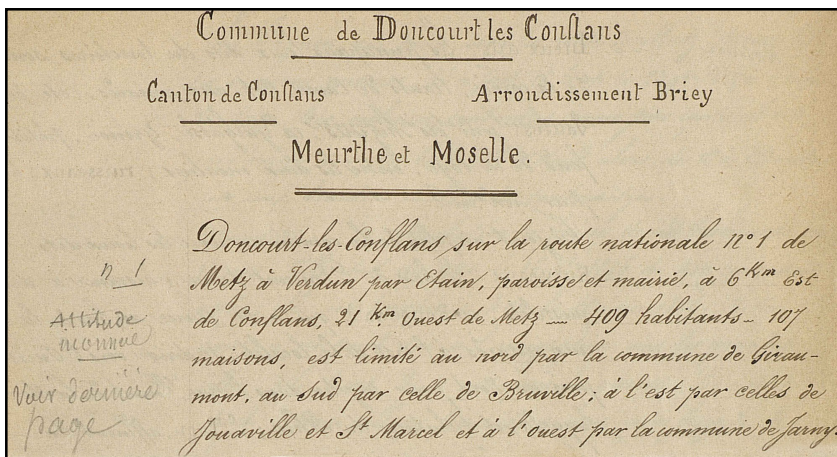 Commune de Doncourt les Conflans
Canton de Conflans
Arrondissement Briey
Meurthe et Moselle.
Doncourt-les-Conflans, sur la route nationale n° 1 de
Metz à Verdun par Etain, paroisse et mairie, à 6 Km Est
de Conflans, 21 Km Ouest de Metz — 409 habitants — 107
maisons, est limité au nord par la commune de Girau-
mont, au Sud par celle de Bruville; à l'est par celles de
Jouaville et St Marcel et à l'ouest par la commune de Jarny.
n 1
Altitude
Voir dernière
page